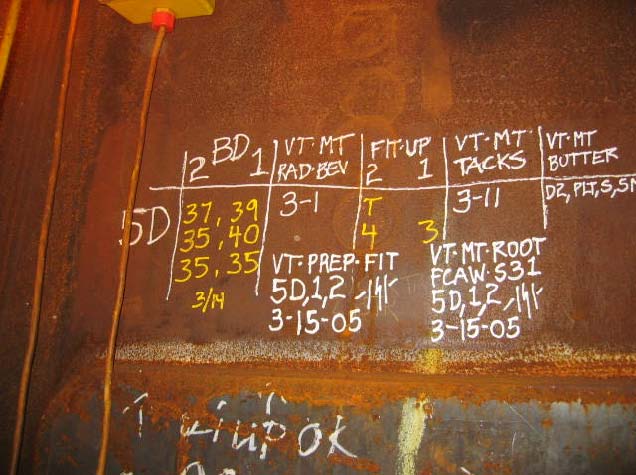 2 BD 1 VT·MT RAD·BEV FIT·UP 2 1 VT·MT TACKS VT·MT BUTTER
5D 37, 39 3-1 T 3-11 D2, PLT, S, SM
35, 40 4 3
35, 35
3/14
VT·PREP·FIT
5D,1,2
3-15-05
VT·MT·ROOT
FCAW·S31
5D,1,2
3-15-05
OK